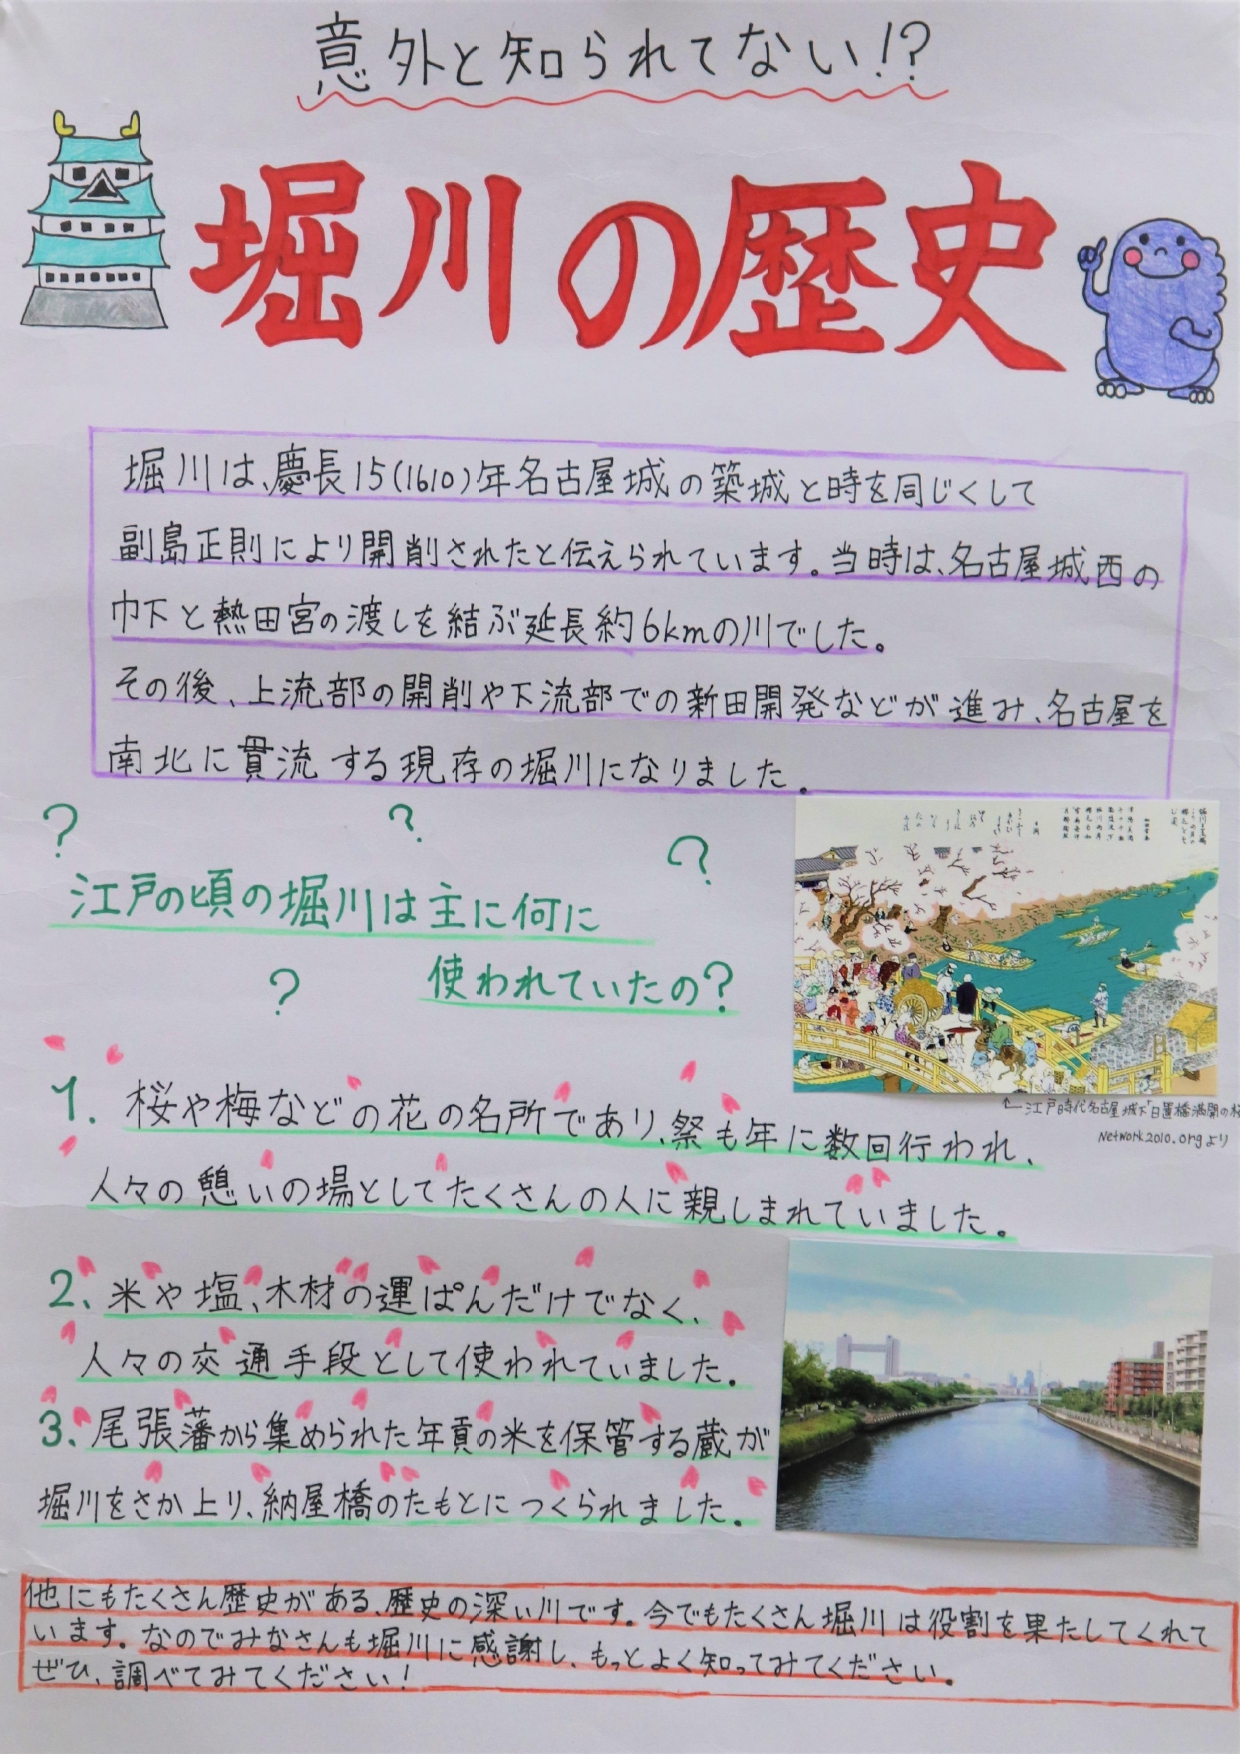 意外と知られてない!?
堀川の歴史
堀川は、慶長15(1610)年名古屋城の築城と時を同じくして
副島正則により開削されたと伝えられています。当時は、名古屋城西の
巾下と熱田宮の渡しを結ぶ延長約6kmの川でした。
その後、上流部の開削や下流部での新田開発などが進み、名古屋を
南北に貫流する現存の堀川になりました。
?
?
?
江戸の頃の堀川は主に何に
?
使われていたの?
←江戸時代名古屋城下「日置橋満開の桜
Network2010.orgより
1. 桜や梅などの花の名所であり、祭も年に数回行われ、
人々の憩いの場としてたくさんの人に親しまれていました。
2、米や塩、木材の運ぱんだけでなく、
人々の交通手段として使われていました。
3、尾張藩から集められた年貢の米を保管する蔵が
堀川をさか上り、納屋橋のたもとにつくられました。
他にもたくさん歴史がある、歴史の深い川です。今でもたくさん堀川は役割を果たしてくれて
います。なのでみなさんも堀川に感謝し、もっとよく知ってみてください。
ぜひ、調べてみてください!